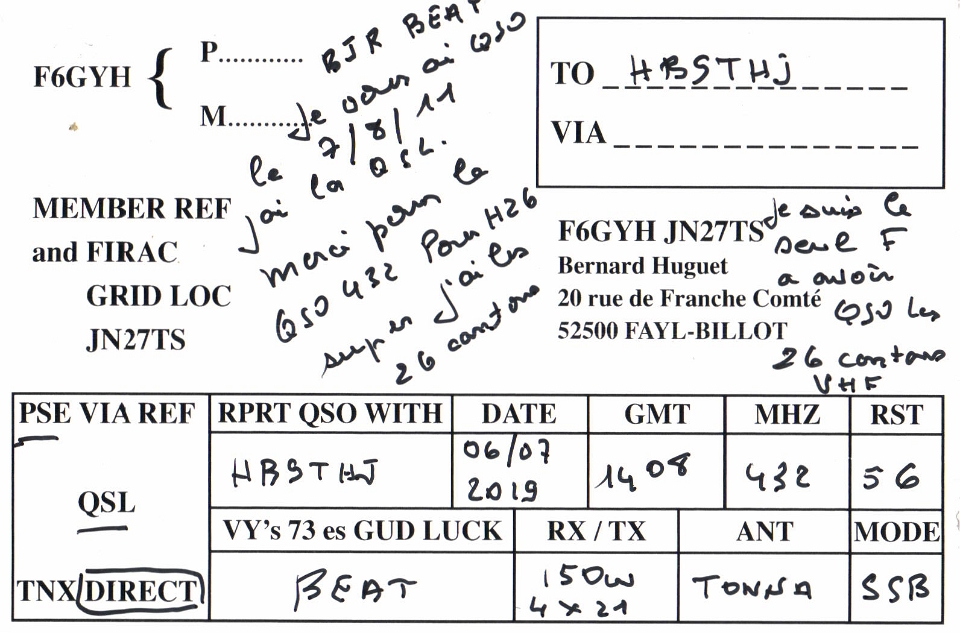 F6GYH { P............
M............
BJR BEAT
Je vous ai QSO
le 7/8/11
j'ai la QSL.
merci pour le
QSO 432 Pour H26
super j'ai les
26 cantons
TO HB9THJ
VIA
MEMBER REF
and FIRAC
GRID LOC
JN27TS
F6GYH JN27TS
Bernard Huguet
20 rue de Franche Comté
52500 FAYL-BILLOT
Je suis le
seul F
a avoir
QSO les
26 cantons
VHF
PSE VIA REF
QSL
TNX/DIRECT
RPRT QSO WITH DATE GMT MHZ RST
HB9THJ 06/07 2019 1408 432 56
VY's 73 es GUD LUCK RX / TX ANT MODE
BEAT 150W 4x21 TONNA SSB